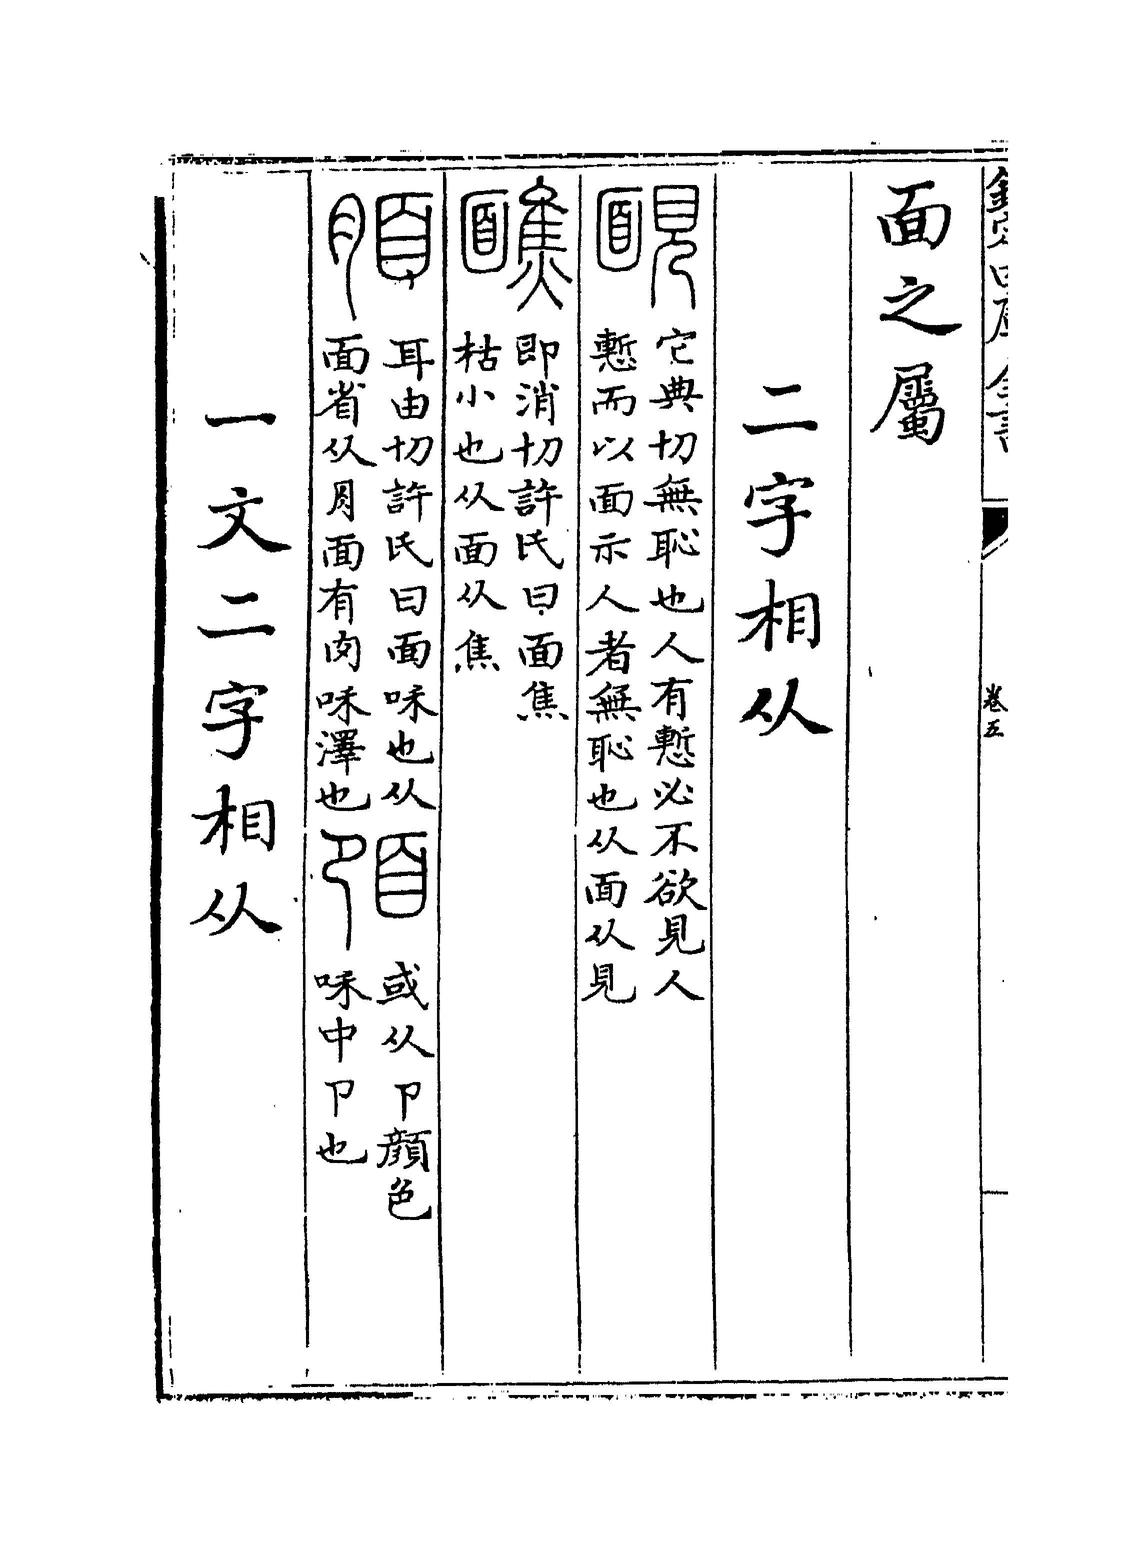 欽定四庫全書
卷五
面之屬
二字相从
靦
它典切無恥也人有慙必不欲見人
慙而以面示人者無恥也从面从見
䩌
即消切許氏曰面焦
枯小也从面从焦
脜
耳由切許氏曰面咊也从
面省从月面有肉咊澤也
或从卩顔色
咊中卩也
一文二字相从